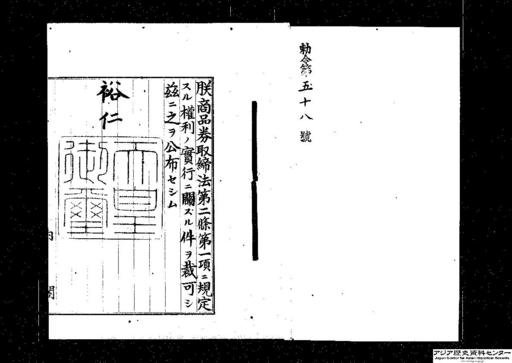 勅令第五十八號
朕商品券取締法第二條第一項ニ規定
スル權利ノ實行ニ關スル件ヲ裁可シ
茲ニ之ヲ公布セシム
裕仁
天皇
御璽
内閣
アジア歴史資料センター
Japan Center for Asian Historical Records